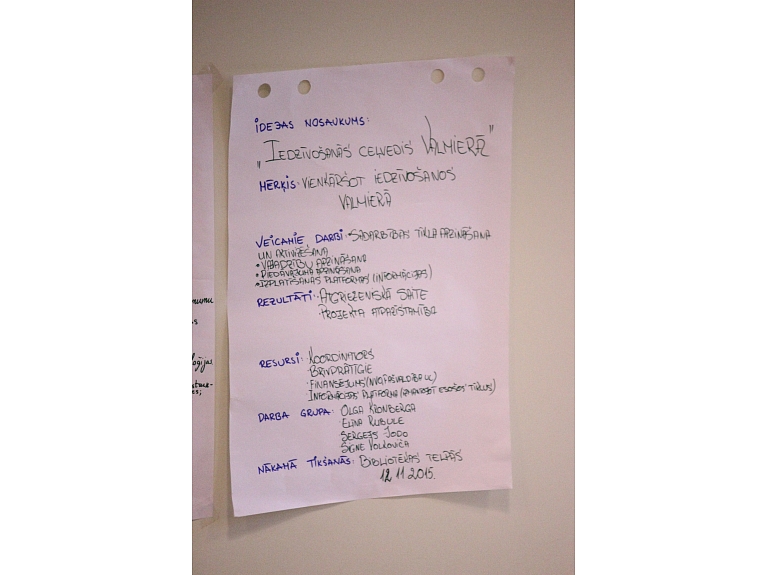 IDEJAS NOSAUKUMS:
"IEDZĪVOŠANĀS CEĻVEDIS VALMIERĀ"
MĒRĶIS: VIENKĀRŠOT IEDZĪVOŠANOS
VALMIERĀ
VEICAMIE DARBI: SADARBĪBAS TĪKLA APZINĀŠANA
UN AKTIVIZĒŠANA
• VAJADZĪBU APZINĀŠANA
• PIEDĀVĀJUMA APZINĀŠANA
• IZPLATĪŠANAS PLATFORMAS (INFORMĀCIJAS)
REZULTĀTI: ATGRIEZENISKĀ SAITE
• PROJEKTA ATPAZĪSTAMĪBA
RESURSI: KOORDINATORS
BRĪVPRĀTĪGIE
• FINANSĒJUMS (NVO, PAŠVALDĪBA UC)
• INFORMĀCIJAS PLATFORMA (IZMANTOT ESOŠOS TĪKLUS)
DARBA GRUPA: OLGA KRONBERGA
ELĪNA RUBULE
SERGEJS JODO
SIGNE VOLKOVIČA
NĀKAMĀ TIKŠANĀS: BIBLIOTĒKAS TELPĀS
12.11.2015.